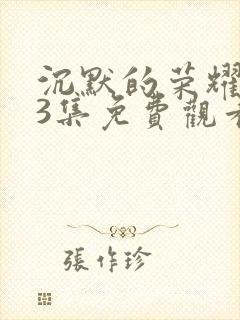 沉默的荣耀
3集免費觀看
張作珍